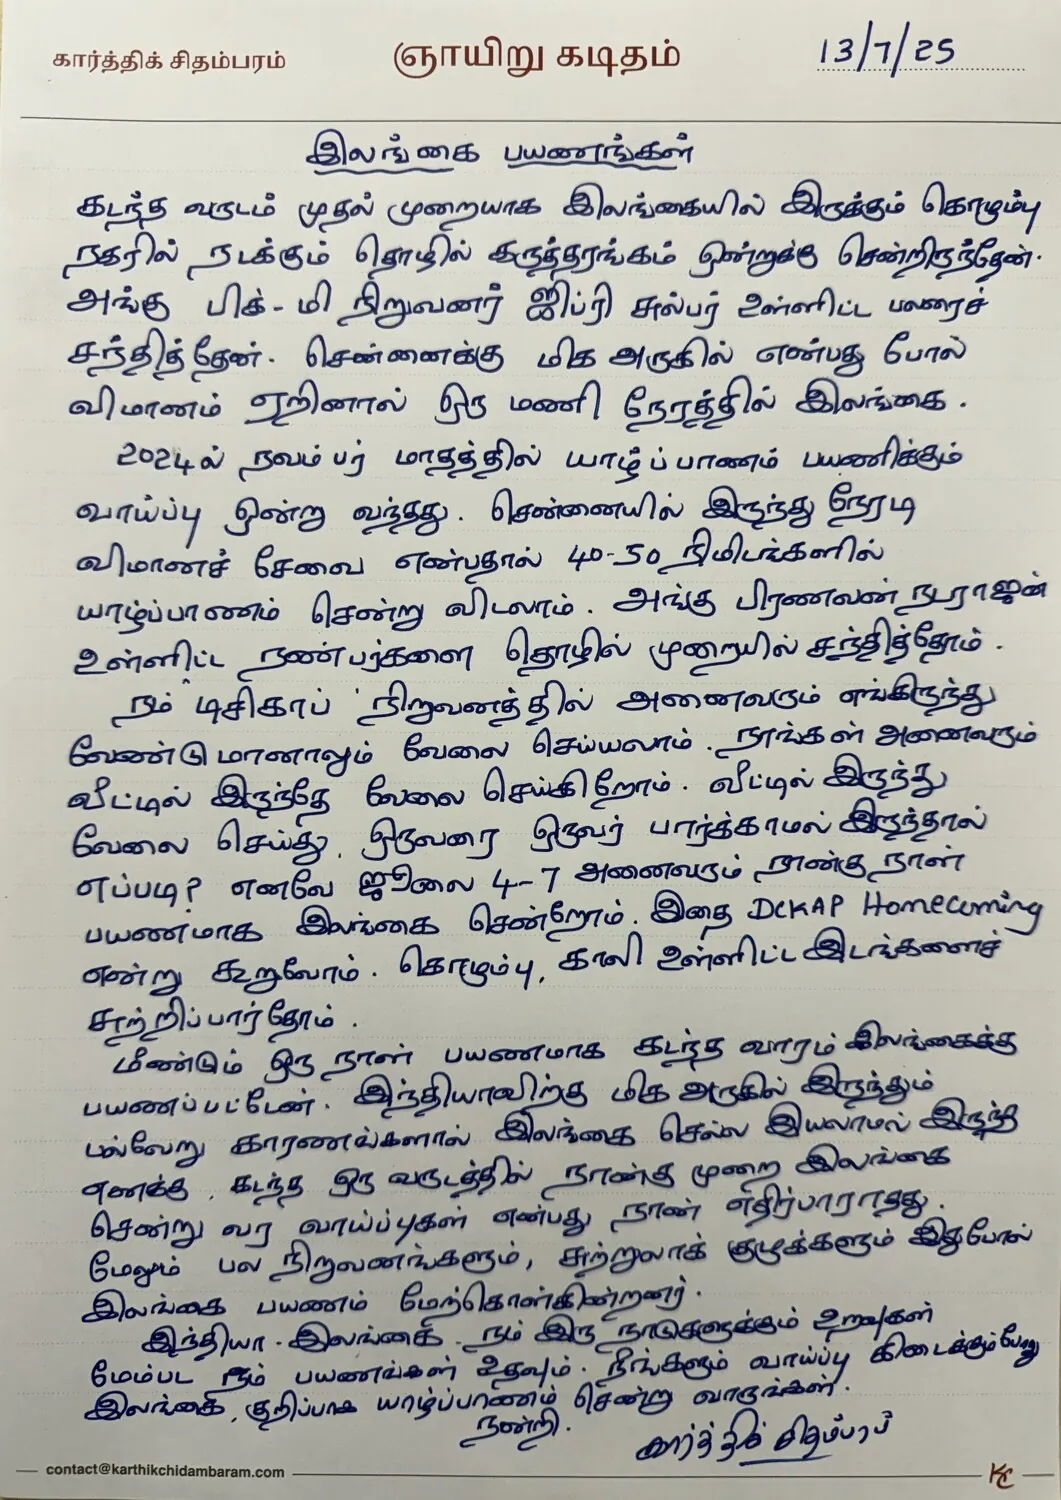 கார்த்திக் சிதம்பரம்
ஞாயிறு கடிதம்
13/7/25
இலங்கை பயணங்கள்
கடந்த வருடம் முதல் முறையாக இலங்கையில் இருக்கும் கொழும்பு
நகரில் நடக்கும் தொழில் கருத்தரங்கம் ஒன்றுக்கு சென்றிருந்தேன்.
அங்கு பிக்-மி நிறுவனர் ஜிப்ரி சுல்பர் உள்ளிட்ட பலரைச்
சந்தித்தேன். சென்னைக்கு மிக அருகில் என்பது போல்
விமானம் ஏறினால் ஒரு மணி நேரத்தில் இலங்கை.
2024ல் நவம்பர் மாதத்தில் யாழ்ப்பாணம் பயணிக்கும்
வாய்ப்பு ஒன்று வந்தது. சென்னையில் இருந்து நேரடி
விமானச் சேவை என்பதால் 40-50 நிமிடங்களில்
யாழ்ப்பாணம் சென்று விடலாம். அங்கு பிரணவன் நடராஜன்
உள்ளிட்ட நண்பர்களை தொழில் முறையில் சந்தித்தோம்.
நம் 'டிசிகாப்' நிறுவனத்தில் அனைவரும் எங்கிருந்து
வேண்டுமானாலும் வேலை செய்யலாம். நாங்கள் அனைவரும்
வீட்டில் இருந்தே வேலை செய்கிறோம். வீட்டில் இருந்து
வேலை செய்து, ஒருவரை ஒருவர் பார்க்காமல் இருந்தால்
எப்படி? எனவே ஜூலை 4-7 அனைவரும் நான்கு நாள்
பயணமாக இலங்கை சென்றோம். இதை DCKAP Homecoming
என்று கூறுவோம். கொழும்பு, காலி உள்ளிட்ட இடங்களைச்
சுற்றிப்பார்தோம்.
மீண்டும் ஒரு நாள் பயணமாக கடந்த வாரம் இலங்கைக்கு
பயணப்பட்டேன். இந்தியாவிற்கு மிக அருகில் இருந்தும்
பல்வேறு காரணங்களால் இலங்கை செல்ல இயலாமல் இருந்த
எனக்கு, கடந்த ஒரு வருடத்தில் நான்கு முறை இலங்கை
சென்று வர வாய்ப்புகள் என்பது நான் எதிர்பாராதது.
மேலும் பல நிறுவனங்களும், சுற்றுலாக் குழுக்களும் இதுபோல்
இலங்கை பயணம் மேற்கொள்கின்றனர்.
இந்தியா - இலங்கை நம் இரு நாடுகளுக்கும் உறவுகள்
மேம்பட நம் பயணங்கள் உதவும். நீங்களும் வாய்ப்பு கிடைக்கும்போது
இலங்கை, குறிப்பாக யாழ்ப்பாணம் சென்று வாருங்கள்.
நன்றி.
கார்த்திக் சிதம்பரம்
contact@karthikchidambaram.com
KC